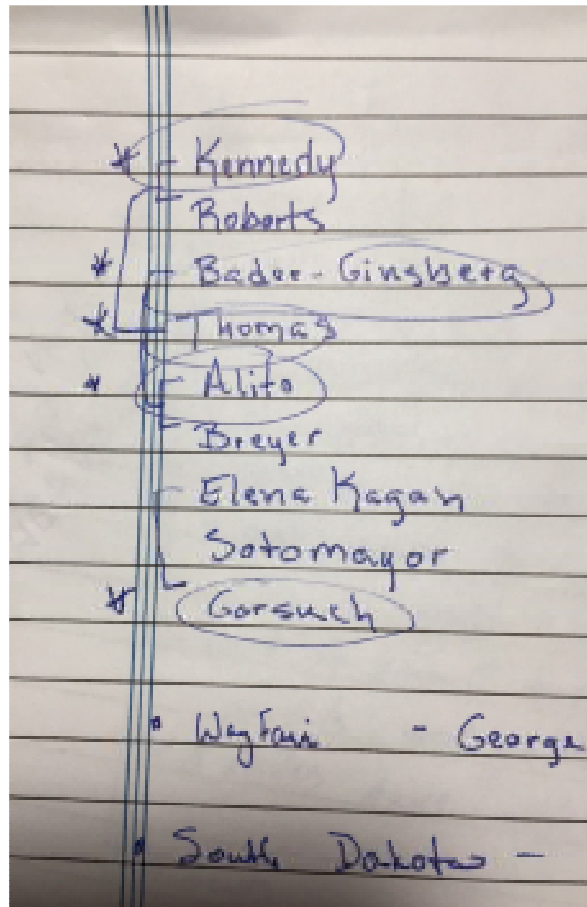 * - Kennedy
- Roberts
* - Bader - Ginsberg
* Thomas
* - Alito
- Breyer
- Elena Kagan
Sotomayor
* Gorsuch
• Wayfair - George
• South Dakota -